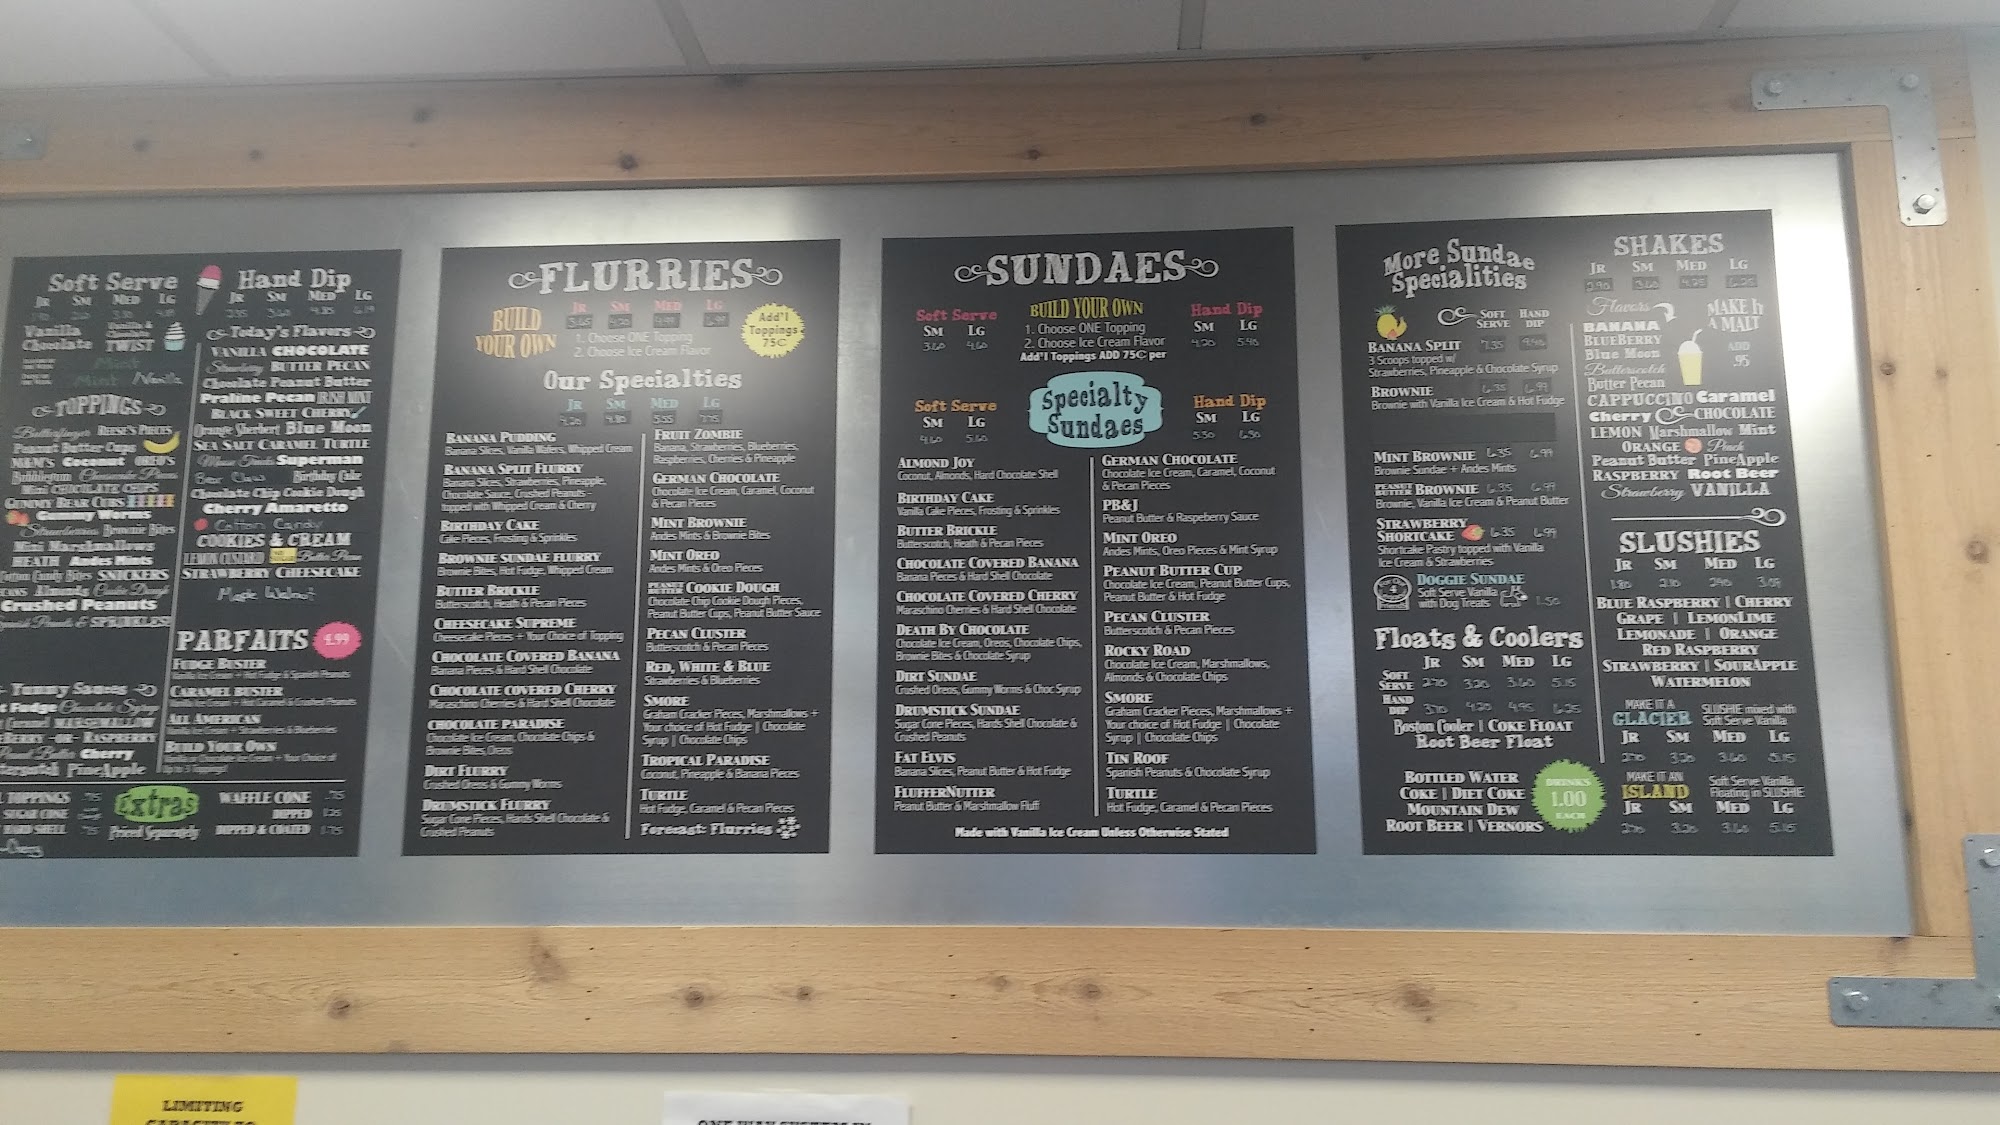 Soft Serve
Jr Sm Med Lg
Vanilla
Chocolate
Vanilla &
Chocolate
TWIST
Mint
Mint / Vanilla
TOPPINGS
Butterfinger REESE'S PIECES
Peanut Butter Cups
M&M'S Coconut OREO'S
Mini CHOCOLATE CHIPS
GUMMY BEAR CUBS
Gummy Worms
Strawberries Brownie Bites
Mini Marshmallows
HEATH Andes Mints
Cotton Candy Bites SNICKERS
Almonds Cookie Dough
Crushed Peanuts
Spanish Peanuts & SPRINKLES!
Yummy Sauces
Fudge Chocolate Syrup
Caramel MARSHMALLOW
-OR- RASPBERRY
Peanut Butter Cherry
PineApple
TOPPINGS .75
SUGAR CONE
HARD SHELL .75
Extras
Priced Separately
WAFFLE CONE .75
DIPPED 1.25
DIPPED & COATED 1.75
Hand Dip
Jr Sm Med Lg
Today's Flavors
VANILLA CHOCOLATE
Strawberry BUTTER PECAN
Chocolate Peanut Butter
Praline Pecan IRISH MINT
BLACK SWEET CHERRY
Orange Sherbert Blue Moon
SEA SALT CARAMEL TURTLE
Moose Tracks Superman
Bear Claw Birthday Cake
Chocolate Chip Cookie Dough
Cherry Amaretto
Cotton Candy
COOKIES & CREAM
LEMON CUSTARD Butter Pecan
STRAWBERRY CHEESECAKE
Maple Walnut
PARFAITS 4.99
FUDGE BUSTER
Vanilla Ice Cream + Hot Fudge & Spanish Peanuts
CARAMEL BUSTER
Vanilla Ice Cream + Hot Caramel & Crushed Peanuts
ALL AMERICAN
Vanilla Ice Cream + Strawberries & Blueberries
BUILD YOUR OWN
Vanilla or Chocolate Ice Cream + Your Choice of
Up to 3 Toppings!
FLURRIES
BUILD
YOUR OWN
Jr Sm Med Lg
1. Choose ONE Topping
2. Choose Ice Cream Flavor
Add'l
Toppings
75¢
Our Specialties
Jr Sm Med Lg
4.20 4.80 5.55 7.75
BANANA PUDDING
Banana Slices, Vanilla Wafers, Whipped Cream
BANANA SPLIT FLURRY
Banana Slices, Strawberries, Pineapple,
Chocolate Sauce, Crushed Peanuts -
topped with Whipped Cream & Cherry
BIRTHDAY CAKE
Cake Pieces, Frosting & Sprinkles
BROWNIE SUNDAE FLURRY
Brownie Bites, Hot Fudge, Whipped Cream
BUTTER BRICKLE
Butterscotch, Heath & Pecan Pieces
CHEESECAKE SUPREME
Cheesecake Pieces + Your Choice of Topping
CHOCOLATE COVERED BANANA
Banana Pieces & Hard Shell Chocolate
CHOCOLATE COVERED CHERRY
Maraschino Cherries & Hard Shell Chocolate
CHOCOLATE PARADISE
Chocolate Ice Cream, Chocolate Chips &
Brownie Bites, Oreos
DIRT FLURRY
Crushed Oreos & Gummy Worms
DRUMSTICK FLURRY
Sugar Cone Pieces, Hards Shell Chocolate &
Crushed Peanuts
FRUIT ZOMBIE
Banana, Strawberries, Blueberries,
Raspberries, Cherries & Pineapple
GERMAN CHOCOLATE
Chocolate Ice Cream, Caramel, Coconut
& Pecan Pieces
MINT BROWNIE
Andes Mints & Brownie Bites
MINT OREO
Andes Mints & Oreo Pieces
PEANUT BUTTER COOKIE DOUGH
Chocolate Chip Cookie Dough Pieces,
Peanut Butter Cups, Peanut Butter Sauce
PECAN CLUSTER
Butterscotch & Pecan Pieces
RED, WHITE & BLUE
Strawberries & Blueberries
SMORE
Graham Cracker Pieces, Marshmallows +
Your choice of Hot Fudge | Chocolate
Syrup | Chocolate Chips
TROPICAL PARADISE
Coconut, Pineapple & Banana Pieces
TURTLE
Hot Fudge, Caramel & Pecan Pieces
Forecast: Flurries
SUNDAES
Soft Serve
Sm Lg
3.60 4.60
BUILD YOUR OWN
1. Choose ONE Topping
2. Choose Ice Cream Flavor
Add'l Toppings ADD 75¢ per
Hand Dip
Sm Lg
4.20 5.40
Soft Serve
Sm Lg
4.60 5.60
Specialty
Sundaes
Hand Dip
Sm Lg
5.30 6.30
ALMOND JOY
Coconut, Almonds, Hard Chocolate Shell
BIRTHDAY CAKE
Vanilla Cake Pieces, Frosting & Sprinkles
BUTTER BRICKLE
Butterscotch, Heath & Pecan Pieces
CHOCOLATE COVERED BANANA
Banana Pieces & Hard Shell Chocolate
CHOCOLATE COVERED CHERRY
Maraschino Cherries & Hard Shell Chocolate
DEATH BY CHOCOLATE
Chocolate Ice Cream, Oreos, Chocolate Chips,
Brownie Bites & Chocolate Syrup
DIRT SUNDAE
Crushed Oreos, Gummy Worms & Choc Syrup
DRUMSTICK SUNDAE
Sugar Cone Pieces, Hards Shell Chocolate &
Crushed Peanuts
FAT ELVIS
Banana Slices, Peanut Butter & Hot Fudge
FLUFFERNUTTER
Peanut Butter & Marshmallow Fluff
GERMAN CHOCOLATE
Chocolate Ice Cream, Caramel, Coconut
& Pecan Pieces
PB&J
Peanut Butter & Raspeberry Sauce
MINT OREO
Andes Mints, Oreo Pieces & Mint Syrup
PEANUT BUTTER CUP
Chocolate Ice Cream, Peanut Butter Cups,
Peanut Butter & Hot Fudge
PECAN CLUSTER
Butterscotch & Pecan Pieces
ROCKY ROAD
Chocolate Ice Cream, Marshmallows,
Almonds & Chocolate Chips
SMORE
Graham Cracker Pieces, Marshmallows +
Your choice of Hot Fudge | Chocolate
Syrup | Chocolate Chips
TIN ROOF
Spanish Peanuts & Chocolate Syrup
TURTLE
Hot Fudge, Caramel & Pecan Pieces
Made with Vanilla Ice Cream Unless Otherwise Stated
More Sundae
Specialities
SOFT SERVE HAND DIP
BANANA SPLIT 7.35 9.40
3 Scoops topped w/
Strawberries, Pineapple & Chocolate Syrup
BROWNIE 6.35 6.99
Brownie with Vanilla Ice Cream & Hot Fudge
MINT BROWNIE 6.35 6.99
Brownie Sundae + Andes Mints
PEANUT BUTTER BROWNIE 6.35 6.99
Brownie, Vanilla Ice Cream & Peanut Butter
STRAWBERRY
SHORTCAKE 6.35 6.99
Shortcake Pastry topped with Vanilla
Ice Cream & Strawberries
DOGGIE SUNDAE
Soft Serve Vanilla
with Dog Treats 1.50
Floats & Coolers
Jr Sm Med Lg
SOFT SERVE 2.70 3.20 3.60 5.15
HAND DIP 3.70 4.20 4.95 6.25
Boston Cooler | COKE FLOAT
Root Beer Float
BOTTLED WATER
COKE | DIET COKE
MOUNTAIN DEW
ROOT BEER | VERNORS
DRINKS
1.00
EACH
SHAKES
Jr Sm Med Lg
2.90 3.60 4.25 6.25
Flavors
MAKE IT
A MALT
ADD
.95
BANANA
BLUEBERRY
Blue Moon
Butterscotch
Butter Pecan
CAPPUCCINO Caramel
Cherry CHOCOLATE
LEMON Marshmallow Mint
ORANGE Peach
Peanut Butter PineApple
RASPBERRY Root Beer
Strawberry VANILLA
SLUSHIES
Jr Sm Med Lg
1.80 2.10 2.40 3.09
BLUE RASPBERRY | CHERRY
GRAPE | LEMONLIME
LEMONADE | ORANGE
RED RASPBERRY
STRAWBERRY | SOURAPPLE
WATERMELON
MAKE IT A
GLACIER
SLUSHIE mixed with
Soft Serve Vanilla
Jr Sm Med Lg
2.70 3.20 3.60 5.15
MAKE IT AN
ISLAND
Soft Serve Vanilla
Floating in SLUSHIE
Jr Sm Med Lg
2.70 3.20 3.60 5.15
LIMITING
CAPACITY TO
ONE WAY SYSTEM IN